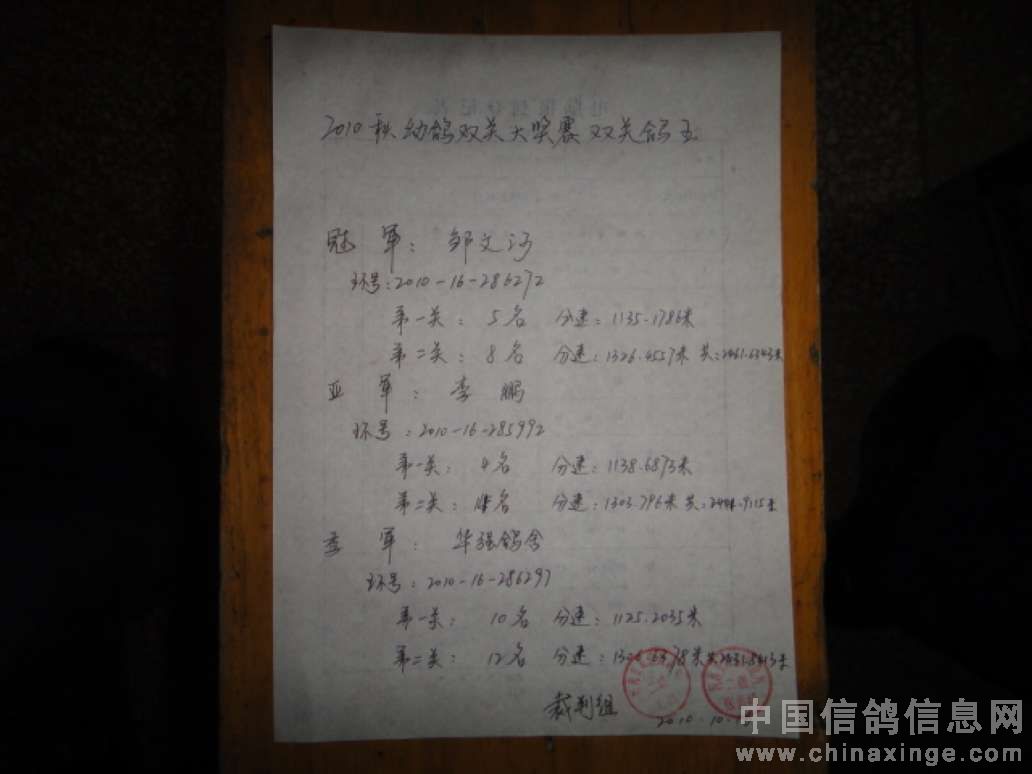 2010秋幼鸽双关大奖赛双关鸽王
冠 军：邹文河
环号：2010-16-286272
第一关：5名 分速：1135.1786米
第二关：8名 分速：1326.4557米 共：2461.6343米
亚 军：李 鹏
环号：2010-16-285992
第一关：4名 分速：1138.6873米
第二关： 名 分速：1303.796米 共：
季 军：华强鸽舍
环号：2010-16-286297
第一关：10名 分速：1125.2035米
第二关：12名 分速： 米 共
裁判组
2010.10.
中国信鸽信息网
www.chinaxinge.com